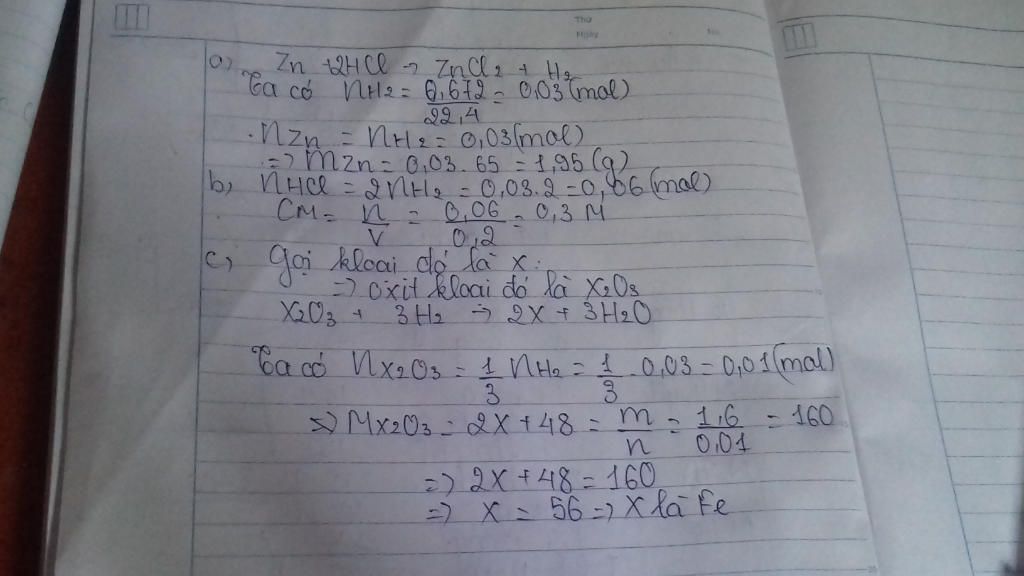 Thứ
Ngày
No.
a) Zn + 2HCl → ZnCl2 + H2
Ta có nH2 = 0,672/22,4 = 0,03 (mol)
. nZn = nH2 = 0,03 (mol)
=> mZn = 0,03 . 65 = 1,95 (g)
b) nHCl = 2nH2 = 0,03.2 = 0,06 (mol)
CM = n/V = 0,06/0,2 = 0,3 M
c) Gọi kloai đó là X.
=> oxit kloai đó là X2O3
X2O3 + 3H2 → 2X + 3H2O
Ta có nX2O3 = 1/3 nH2 = 1/3 . 0,03 = 0,01 (mol)
=> MX2O3 = 2X + 48 = m/n = 1,6/0,01 = 160
=> 2X + 48 = 160
=> X = 56 => X là Fe